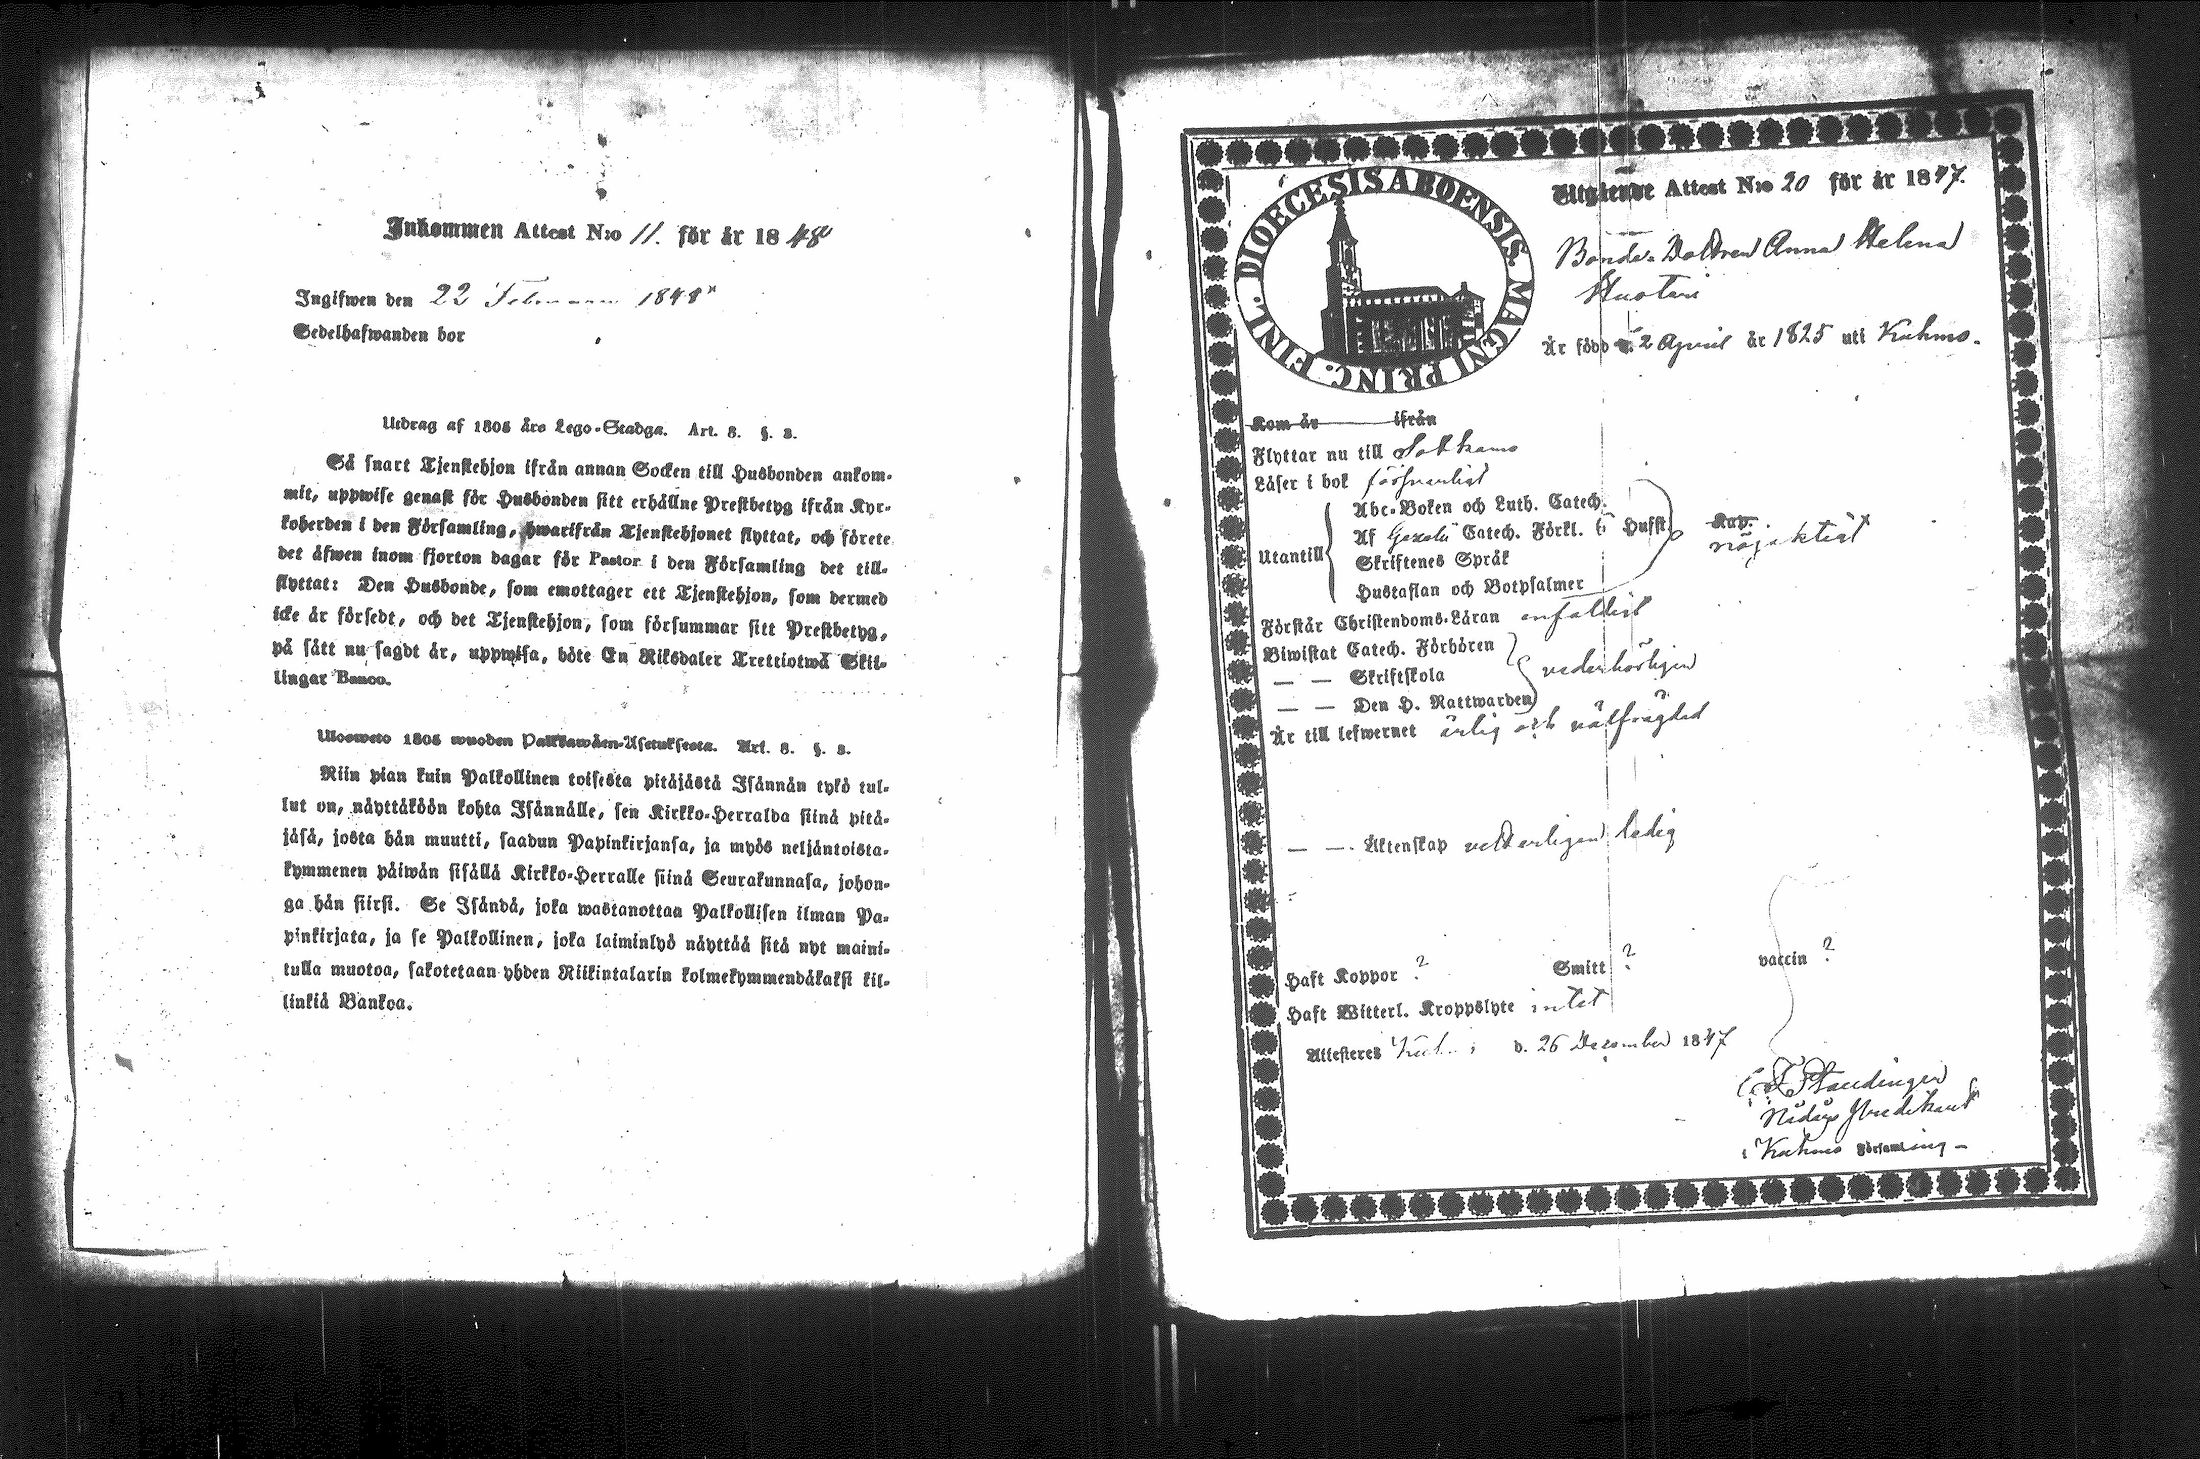 Inkommen Attest N:o 11. för år 1848
Ingifwen den 22 Februari 1848
Sedelhafwanden bor
Utdrag af 1805 års Lego-Stadga. Art. 8. §. 3.
Så snart Tjenstehjon ifrån annan Socken till Husbonden ankom-
mit, uppwise genast för Husbonden sitt erhållne Prestbetyg ifrån Kyr-
koherden i den Församling, hwarifrån Tjenstehjonet flyttat, och förete
det äfwen inom fjorton dagar för Pastor i den Församling det till-
flyttat: Den Husbonde, som emottager ett Tjenstehjon, som dermed
icke är försedt, och det Tjenstehjon, som försummar sitt Prestbetyg,
på sätt nu sagdt är, uppwisa, böte En Riksdaler Trettiotwå Skil-
lingar Banco.
Ulosweto 1805 wuoden Palkkawäen-Asetuksesta. Art. 8. §. 3.
Niin pian kuin Palkollinen toisesta pitäjästä Isännän tykö tul-
lut on, näyttäköön kohta Isännälle, sen Kirkko-Herralda siinä pitä-
jäsä, josta hän muutti, saadun Papinkirjansa, ja myös neljäntoista-
kymmenen päiwän sisällä Kirkko-Herralle siinä Seurakunnasa, johon-
ga hän siirsi. Se Isändä, joka wastanottaa Palkollisen ilman Pa-
pinkirjata, ja se Palkollinen, joka laiminlyö näyttää sitä nyt maini-
tulla muotoa, sakotetaan yhden Riikintalarin kolmekymmendäkaksi kil-
linkiä Bankoa.
DIOECESIS ABOENSIS. MAGNI PRINC. FINL.
Utgående Attest N:o 20 för år 1847.
Bonde-Dottren Anna Helena
Huotari
Är född d. 2 April år 1825 uti Kuhmo.
Kom år ifrån
Flyttar nu till Sotkamo
Läser i bok försvarligt
Utantill
Abc-Boken och Luth. Catech.
Af Gezelii Catech. Förkl. 6 Hufst.
Skriftenes Språk
Hustaflan och Botpsalmer
Kap.
nögaktigt
Förstår Christendoms-Läran enfaldigt
Biwistat Catech. Förhören
— — Skriftskola
— — Den H. Nattwarden
vederbörligen
Är till lefwernet ärlig och välfrägdad
— — Äktenskap veterligen ledig
Haft Koppor ? Smitt ? vaccin ?
Haft Witterl. Kroppslyte intet
Attesteres d. 26 December 1847
Nådårs Predikant
i Kuhmo Församling